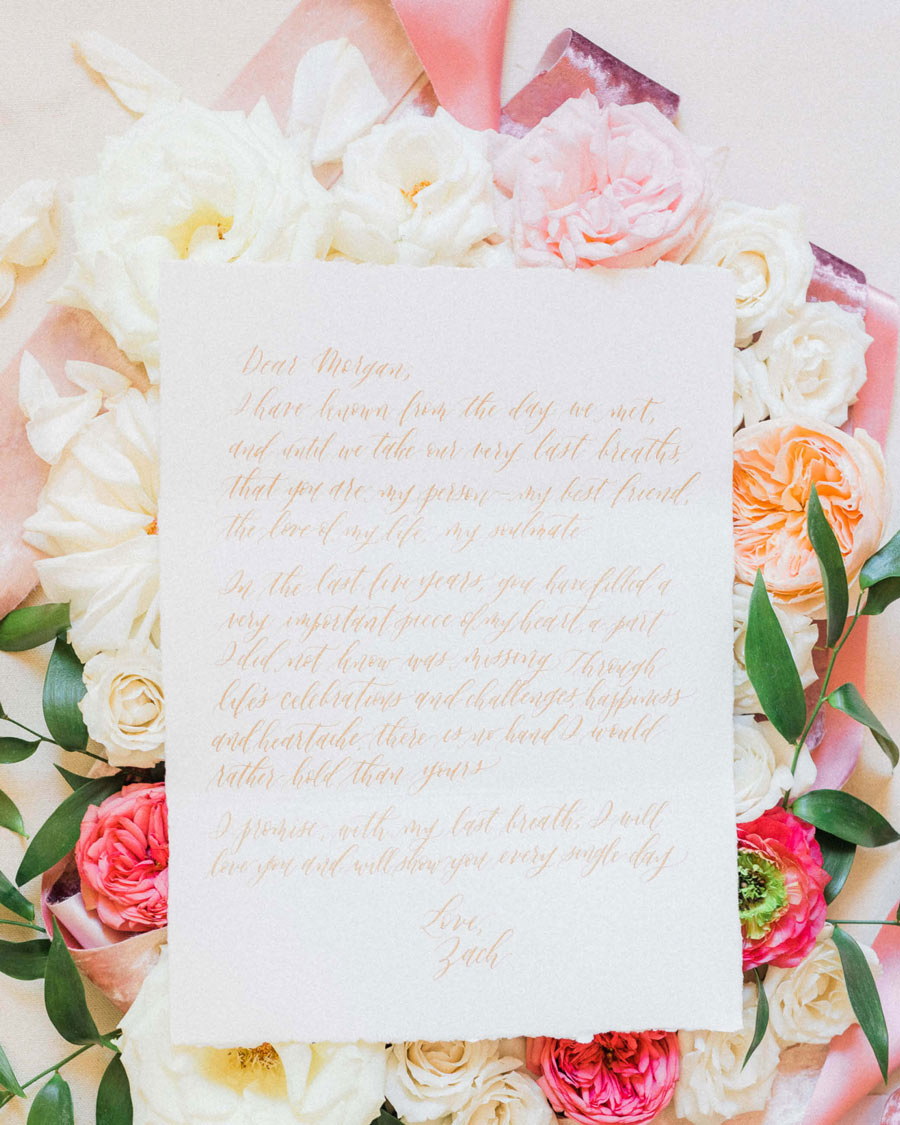 Dear Morgan,
I have known from the day we met,
and until we take our very last breaths,
that you are my person—my best friend,
the love of my life, my soulmate
In the last five years, you have filled a
very important piece of my heart, a part
I did not know was missing. Through
life's celebrations and challenges, happiness
and heartache, there is no hand I would
rather hold than yours
I promise, with my last breath, I will
love you and will show you every single day
Love,
Zach